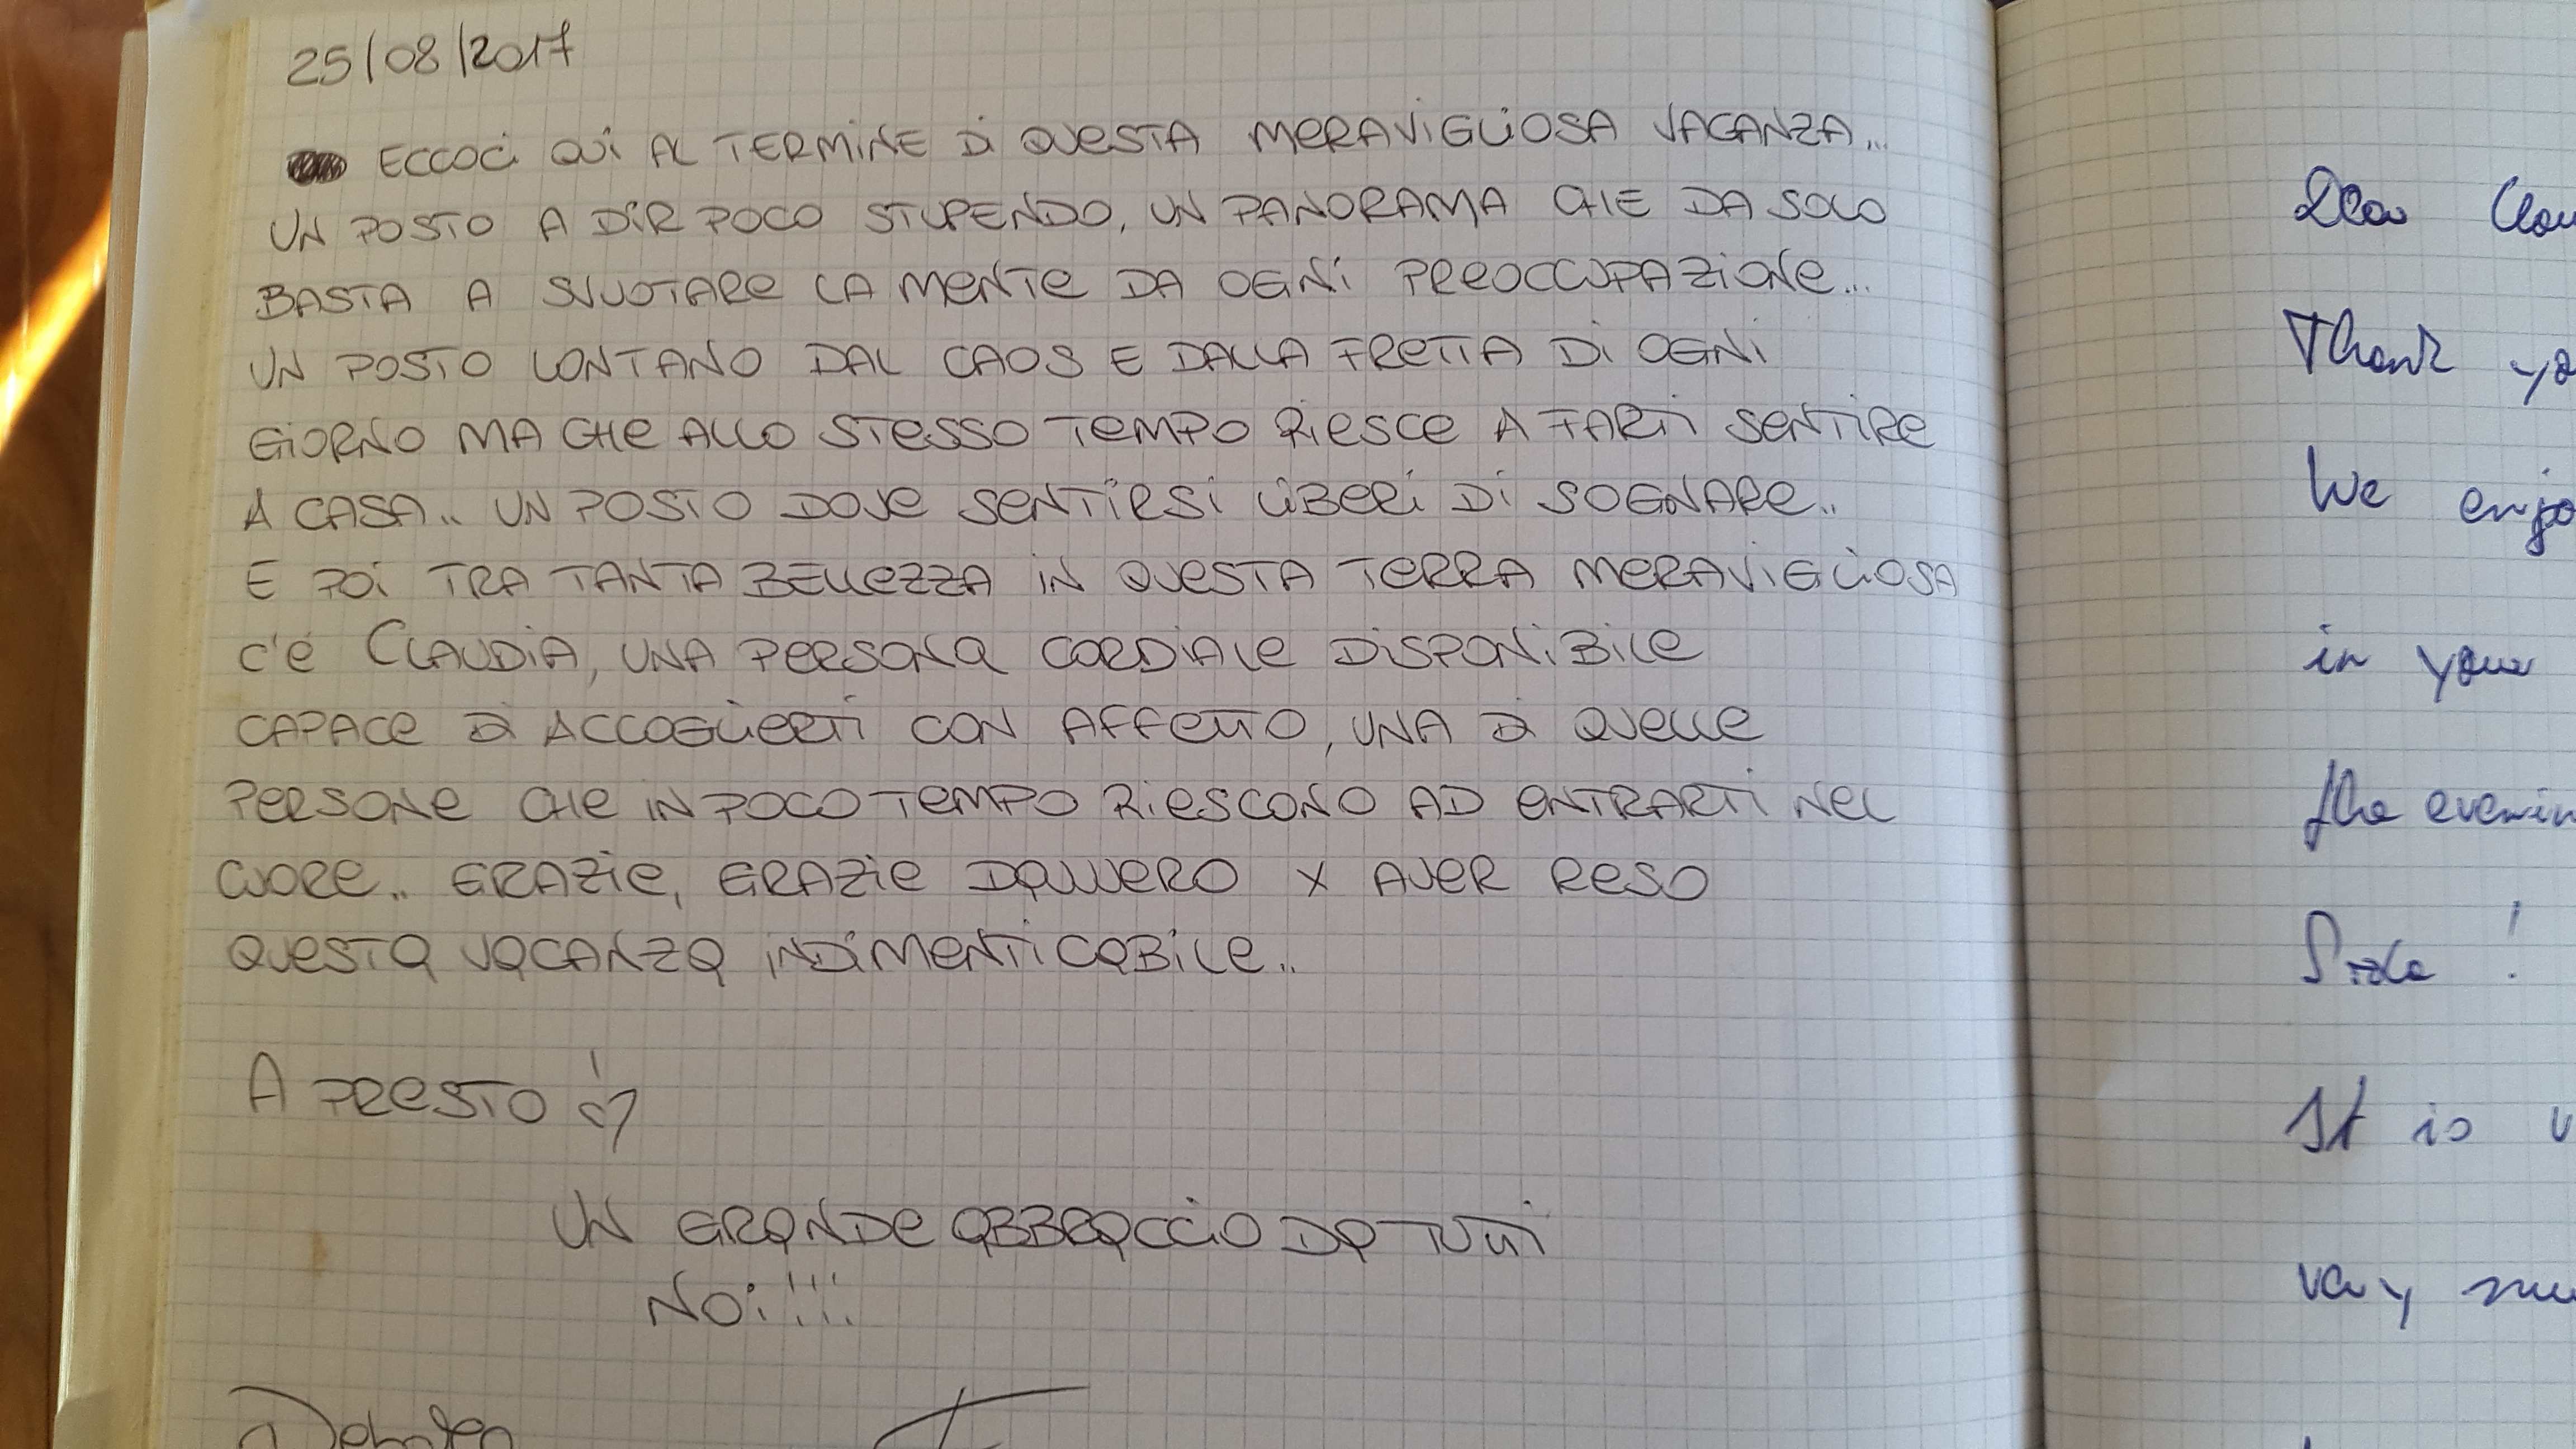 25/08/2017
ECCOCI QUI AL TERMINE DI QUESTA MERAVIGLIOSA VACANZA...
UN POSTO A DIR POCO STUPENDO, UN PANORAMA CHE DA SOLO
BASTA A SVUOTARE LA MENTE DA OGNI PREOCCUPAZIONE...
UN POSTO LONTANO DAL CAOS E DALLA FRETTA DI OGNI
GIORNO MA CHE ALLO STESSO TEMPO RIESCE A FARTI SENTIRE
A CASA.. UN POSTO DOVE SENTIRSI LIBERI DI SOGNARE..
E POI TRA TANTA BELLEZZA IN QUESTA TERRA MERAVIGLIOSA
C'È CLAUDIA, UNA PERSONA CORDIALE DISPONIBILE
CAPACE DI ACCOGLIERTI CON AFFETTO, UNA DI QUELLE
PERSONE CHE IN POCO TEMPO RIESCONO AD ENTRARTI NEL
CUORE.. GRAZIE, GRAZIE DAVVERO X AVER RESO
QUESTA VACANZA INDIMENTICABILE..
A PRESTO
UN GRANDE ABBRACCIO DA TUTTI
NOI!!!
Thank
We
in your
the
!
It is
very